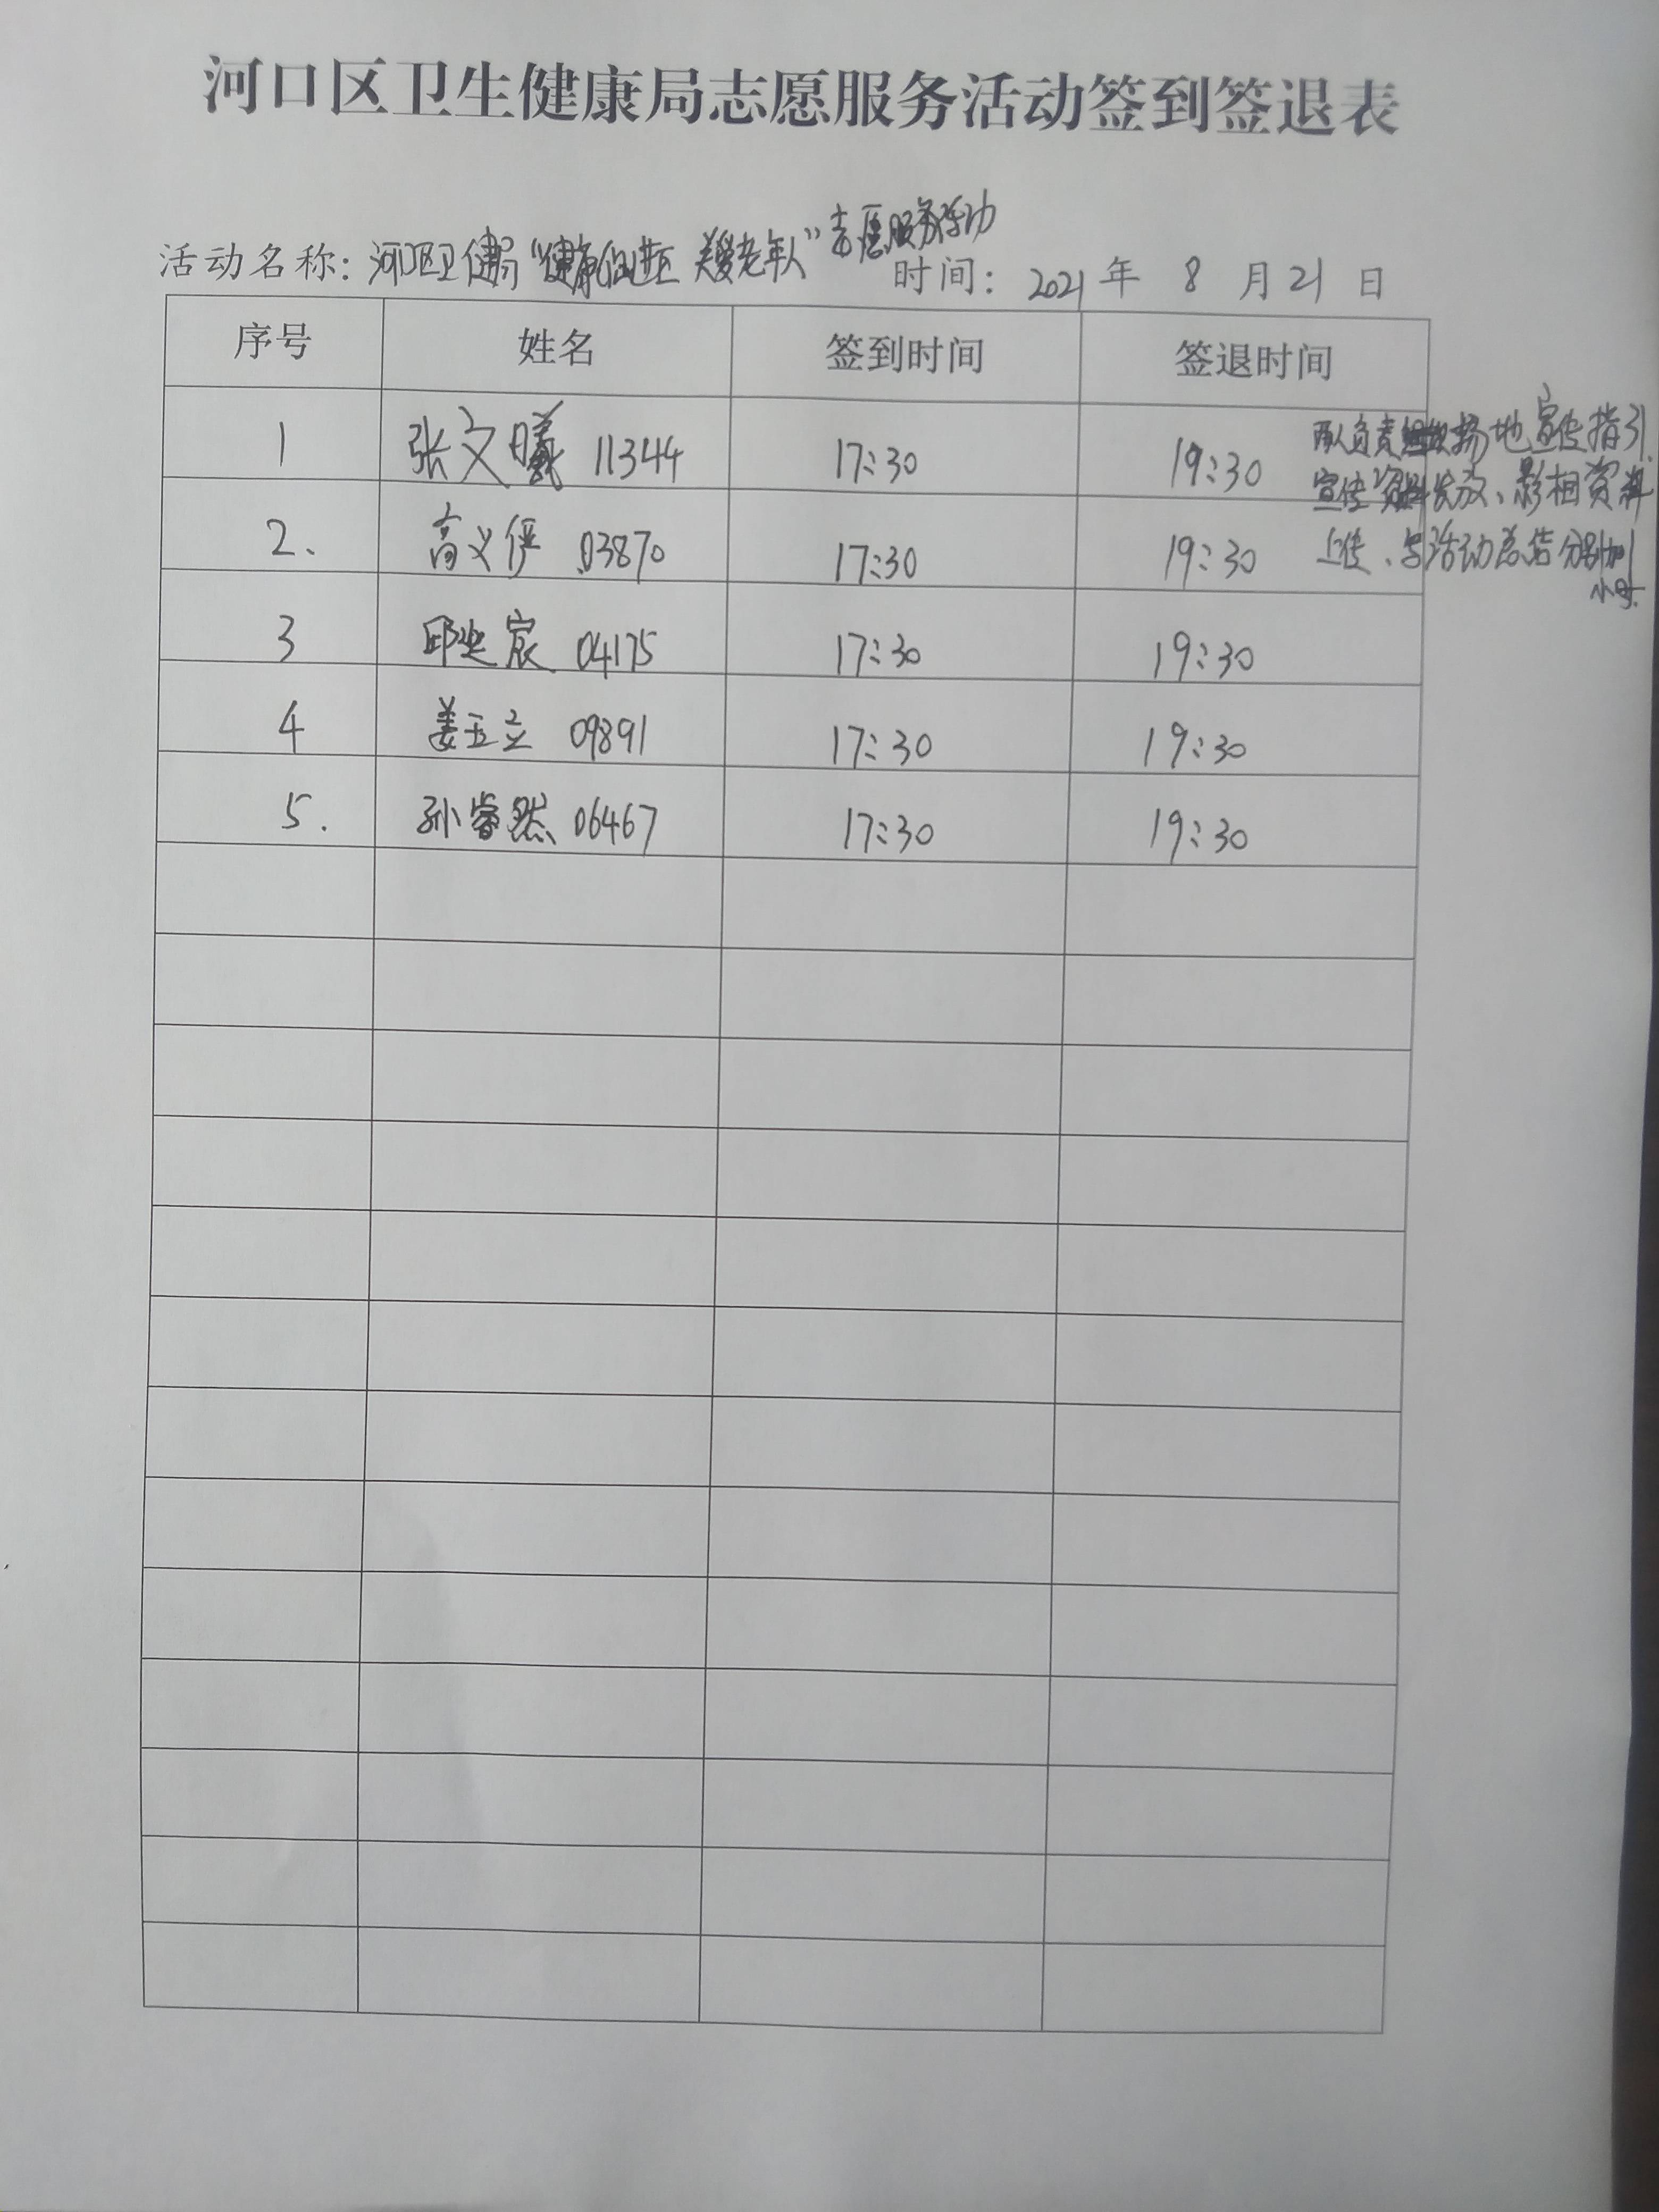 河口区卫生健康局志愿服务活动签到签退表
活动名称：河口区卫健局“健康促进区 关爱老年人”志愿服务活动
时间：2021年 8 月 21 日
序号 姓名 签到时间 签退时间
1 张文曦 11344 17:30 19:30
2、 高义俨 03870 17:30 19:30
两人负责组织场地宣传指引、
宣传资料发放、影相资料
上传、与活动总结分别加
小时.
3 邱 宸 04175 17:30 19:30
4 姜玉立 09891 17:30 19:30
5. 孙睿然 06467 17:30 19:30